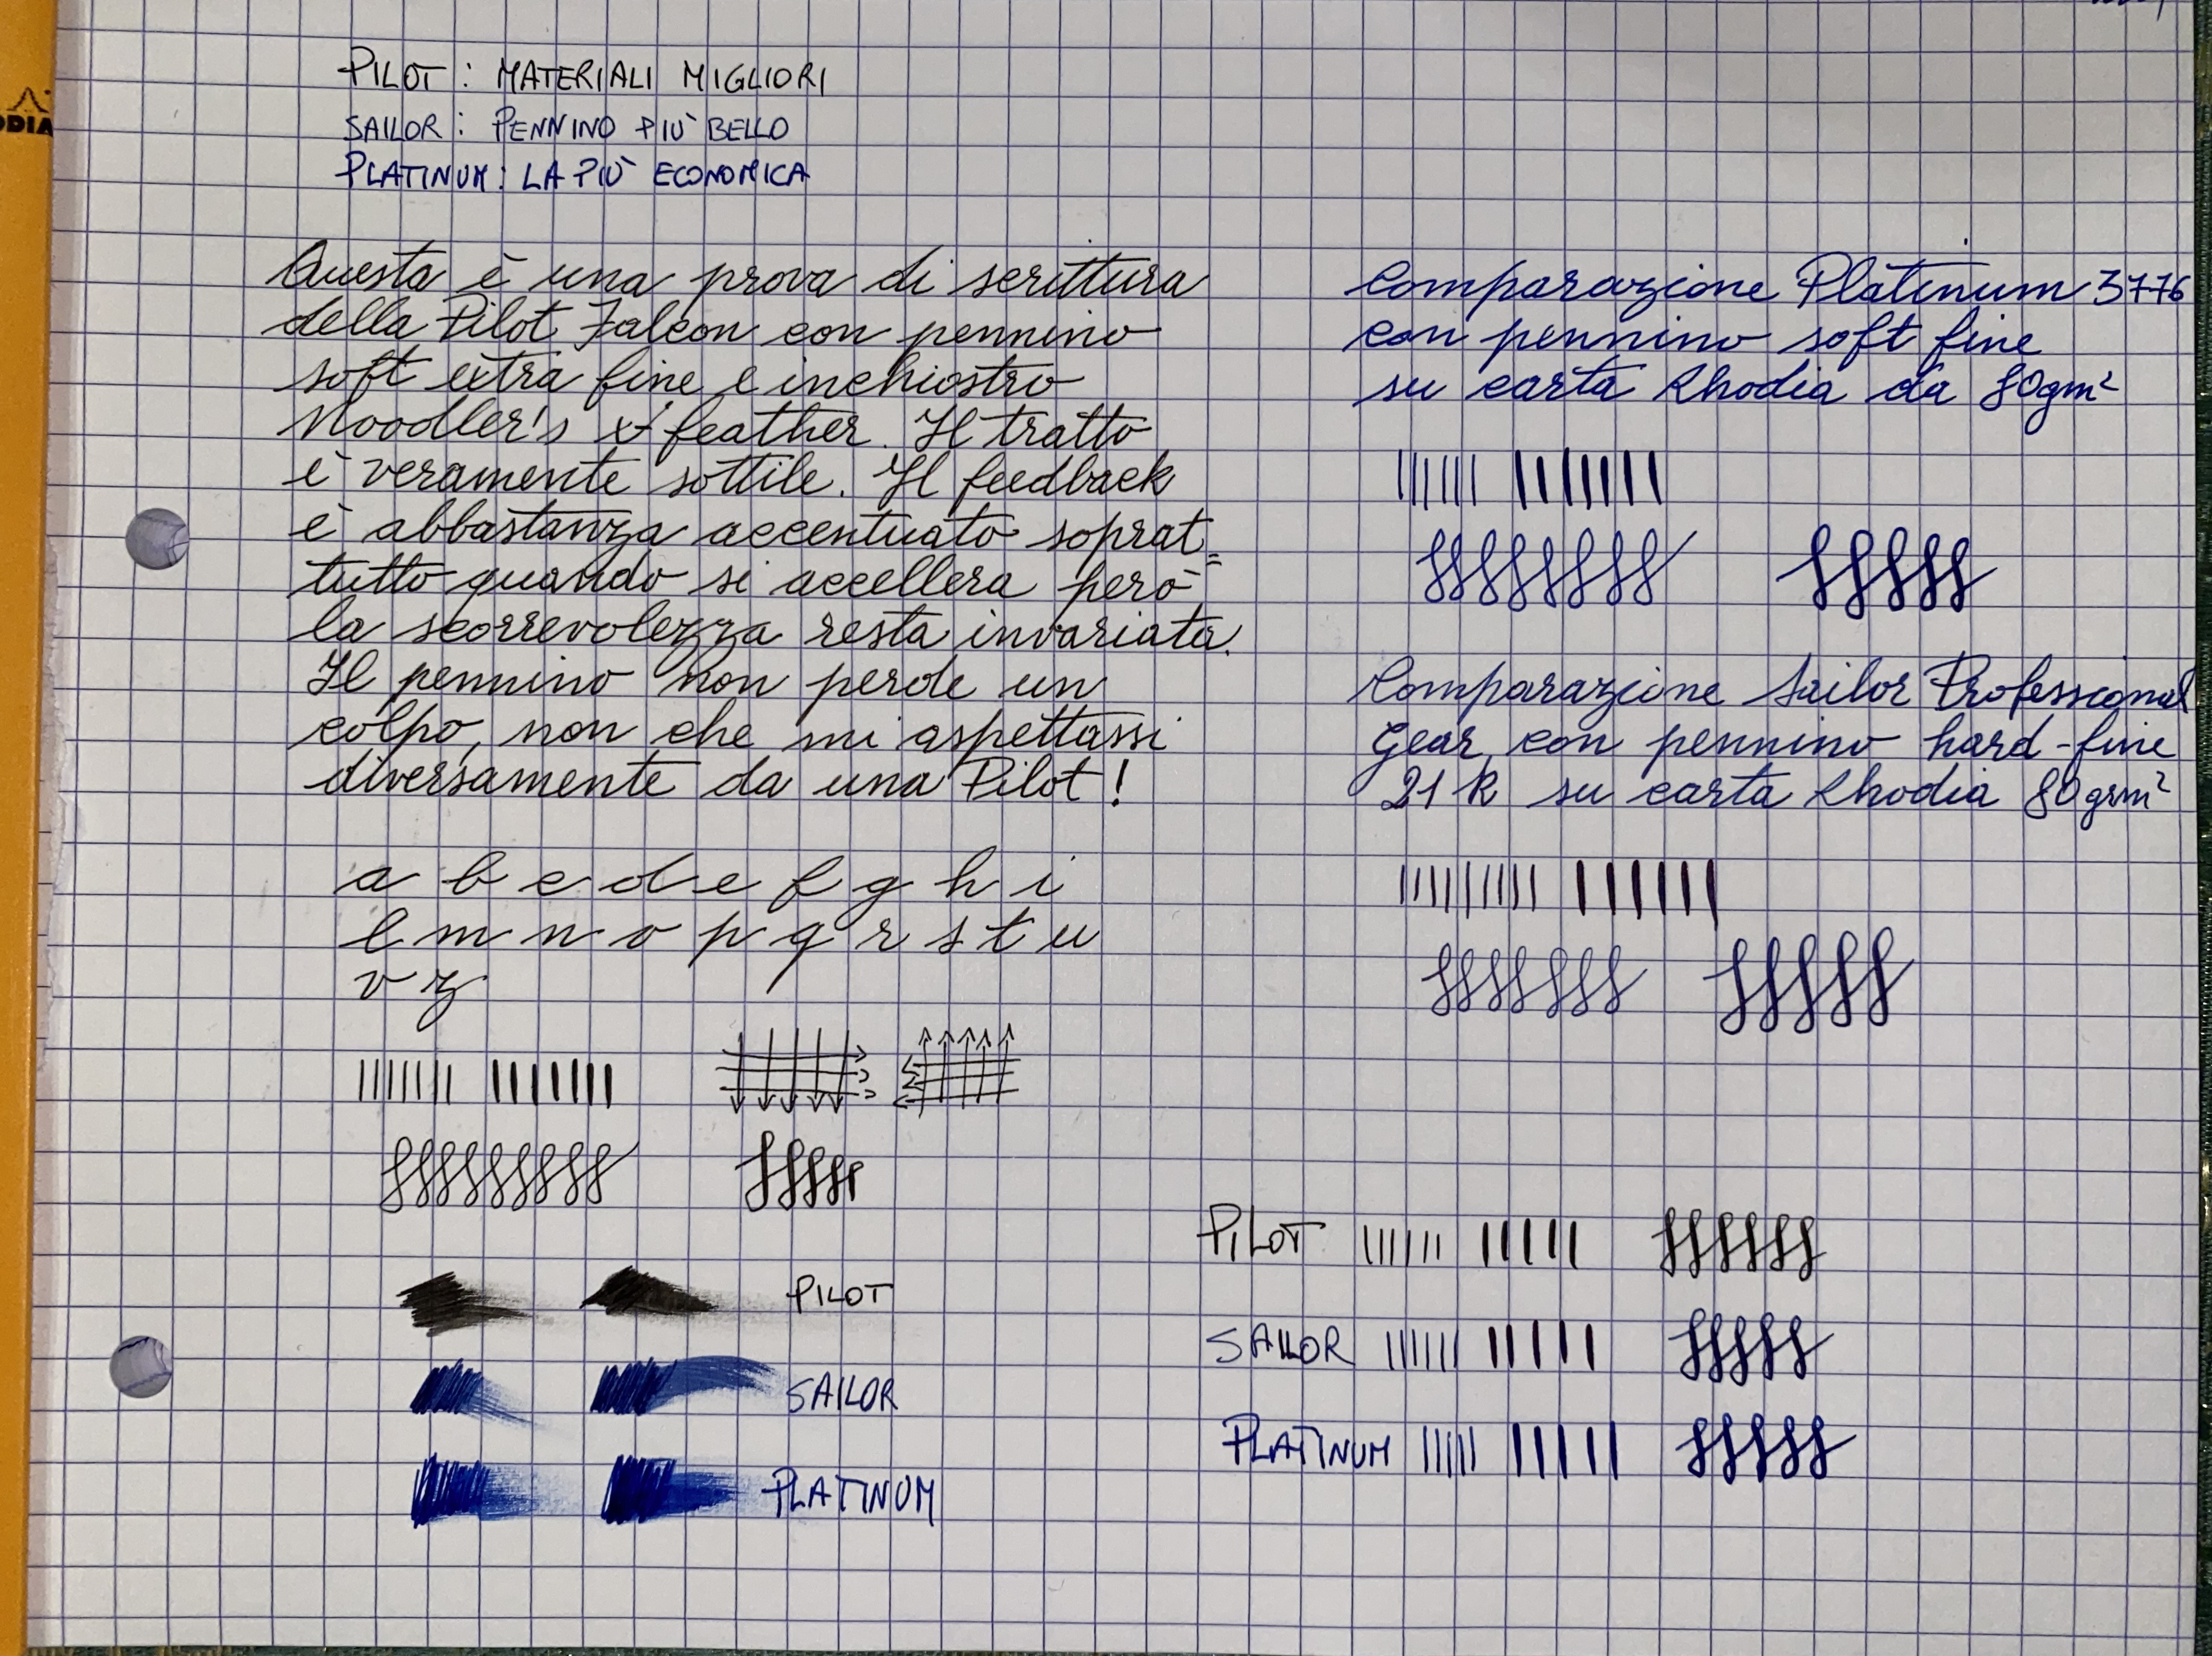 PILOT: MATERIALI MIGLIORI
SAILOR: PENNINO PIÙ BELLO
PLATINUM: LA PIÙ ECONOMICA
Questa è una prova di scrittura
della Pilot Falcon con pennino
soft extra fine e inchiostro
Noodler's x-feather. Il tratto
è veramente sottile. Il feedback
è abbastanza accentuato soprat=
tutto quando si accellera però
la scorrevolezza resta invariata.
Il pennino non perde un
colpo, non che mi aspettassi
diversamente da una Pilot!
a b c d e f g h i
l m n o p q r s t u
v z
PILOT
SAILOR
PLATINUM
Comparazione Platinum 3776
con pennino soft fine
su carta Rhodia da 80gm²
Comparazione Sailor Professional
Gear con pennino hard-fine
21k su carta Rhodia 80grm²
PILOT
SAILOR
PLATINUM